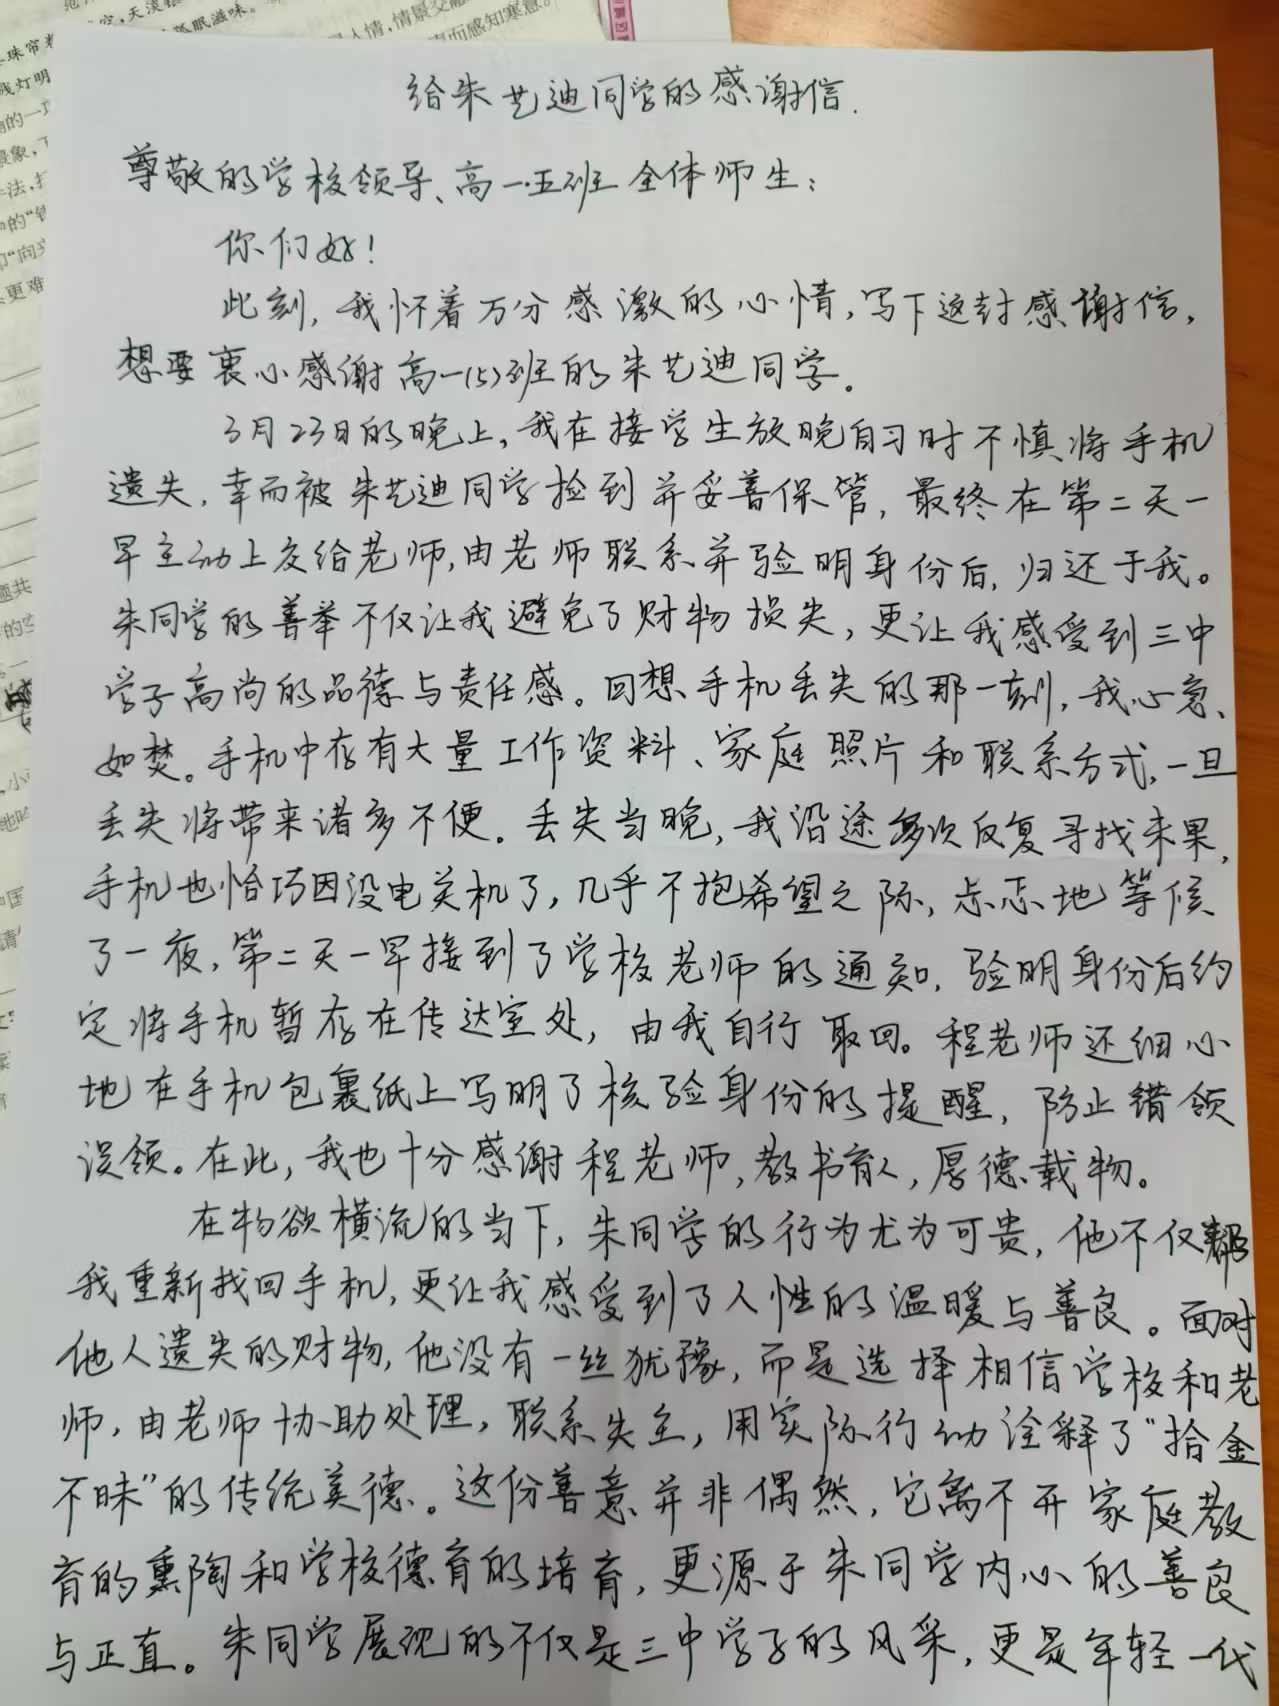 给朱艺迪同学的感谢信.
尊敬的学校领导、高一·五班全体师生：
你们好！
此刻，我怀着万分感激的心情，写下这封感谢信，
想要衷心感谢高一(5)班的朱艺迪同学。
3月23日的晚上，我在接学生放晚自习时不慎将手机
遗失，幸而被朱艺迪同学捡到并妥善保管，最终在第二天一
早主动上交给老师，由老师联系并验明身份后，归还于我。
朱同学的善举不仅让我避免了财物损失，更让我感受到三中
学子高尚的品德与责任感。回想手机丢失的那一刻，我心急
如焚。手机中存有大量工作资料、家庭照片和联系方式，一旦
丢失将带来诸多不便。丢失当晚，我沿途多次反复寻找未果，
手机也恰巧因没电关机了，几乎不抱希望之际，忐忑地等候
了一夜，第二天一早接到了学校老师的通知，验明身份后约
定将手机暂存在传达室处，由我自行取回。程老师还细心
地在手机包裹纸上写明了核验身份的提醒，防止错领
误领。在此，我也十分感谢程老师，教书育人，厚德载物。
在物欲横流的当下，朱同学的行为尤为可贵，他不仅帮
我重新找回手机，更让我感受到了人性的温暖与善良。面对
他人遗失的财物，他没有一丝犹豫，而是选择相信学校和老
师，由老师协助处理，联系失主，用实际行动诠释了“拾金
不昧”的传统美德。这份善意并非偶然，它离不开家庭教
育的熏陶和学校德育的培育，更源于朱同学内心的善良
与正直。朱同学展现的不仅是三中学子的风采，更是年轻一代